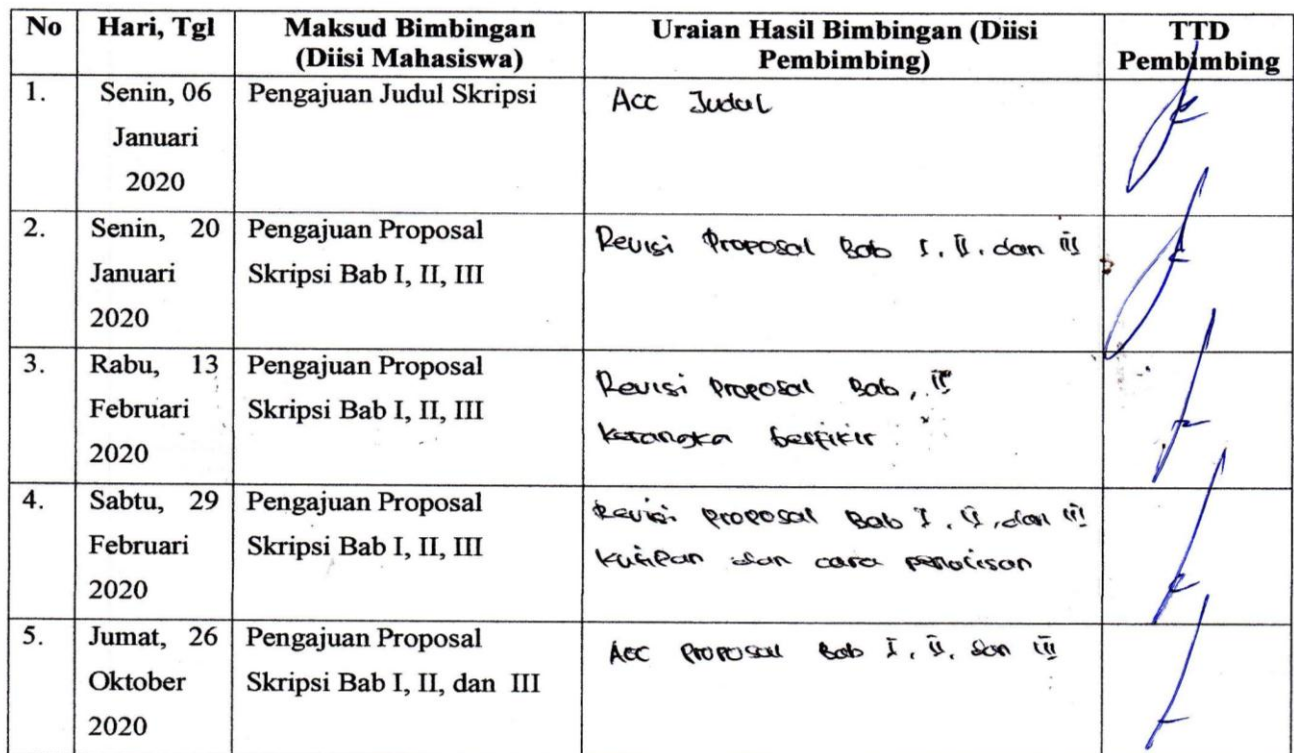 No Hari, Tgl Maksud Bimbingan (Diisi Mahasiswa) Uraian Hasil Bimbingan (Diisi Pembimbing) TTD Pembimbing
1. Senin, 06 Januari 2020 Pengajuan Judul Skripsi Acc Judul
2. Senin, 20 Januari 2020 Pengajuan Proposal Skripsi Bab I, II, III Revisi Proposal Bab I, II, dan III
3. Rabu, 13 Februari 2020 Pengajuan Proposal Skripsi Bab I, II, III Revisi Proposal Bab, II kerangka berfikir
4. Sabtu, 29 Februari 2020 Pengajuan Proposal Skripsi Bab I, II, III Revisi proposal Bab I, II, dan III kutipan dan cara penulisan
5. Jumat, 26 Oktober 2020 Pengajuan Proposal Skripsi Bab I, II, dan III Acc proposal Bab I, II, dan III